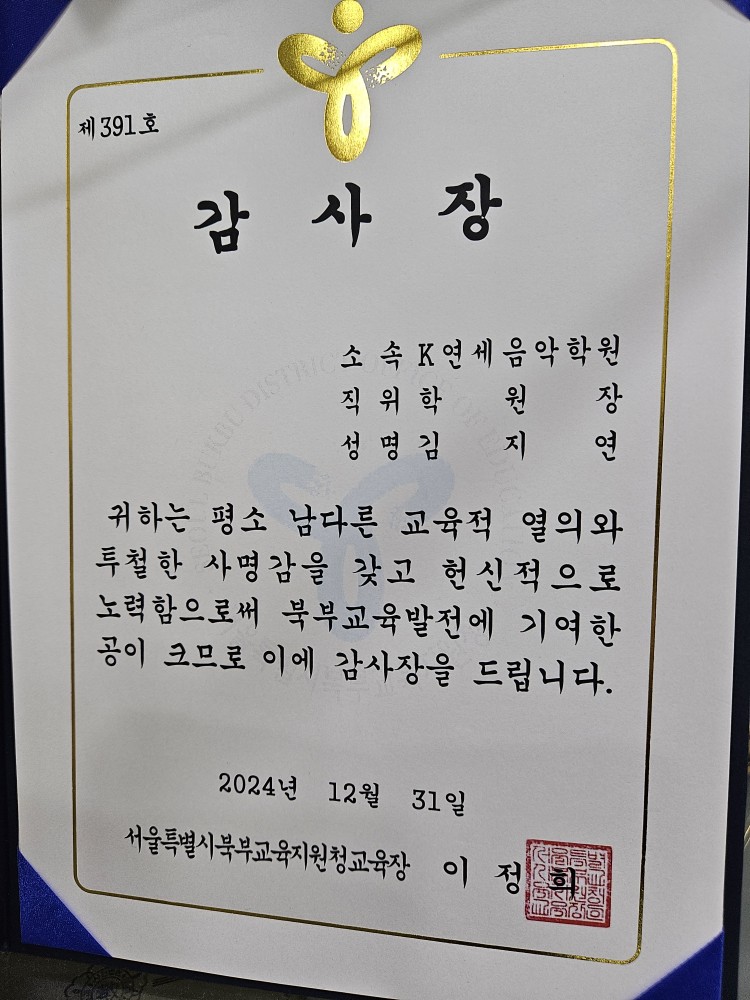 제391호
감 사 장
소 속 K연세음악학원
직 위 학 원 장
성 명 김 지 연
귀하는 평소 남다른 교육적 열의와
투철한 사명감을 갖고 헌신적으로
노력함으로써 북부교육발전에 기여한
공이 크므로 이에 감사장을 드립니다.
2024년 12월 31일
서울특별시북부교육지원청교육장 이 정 희